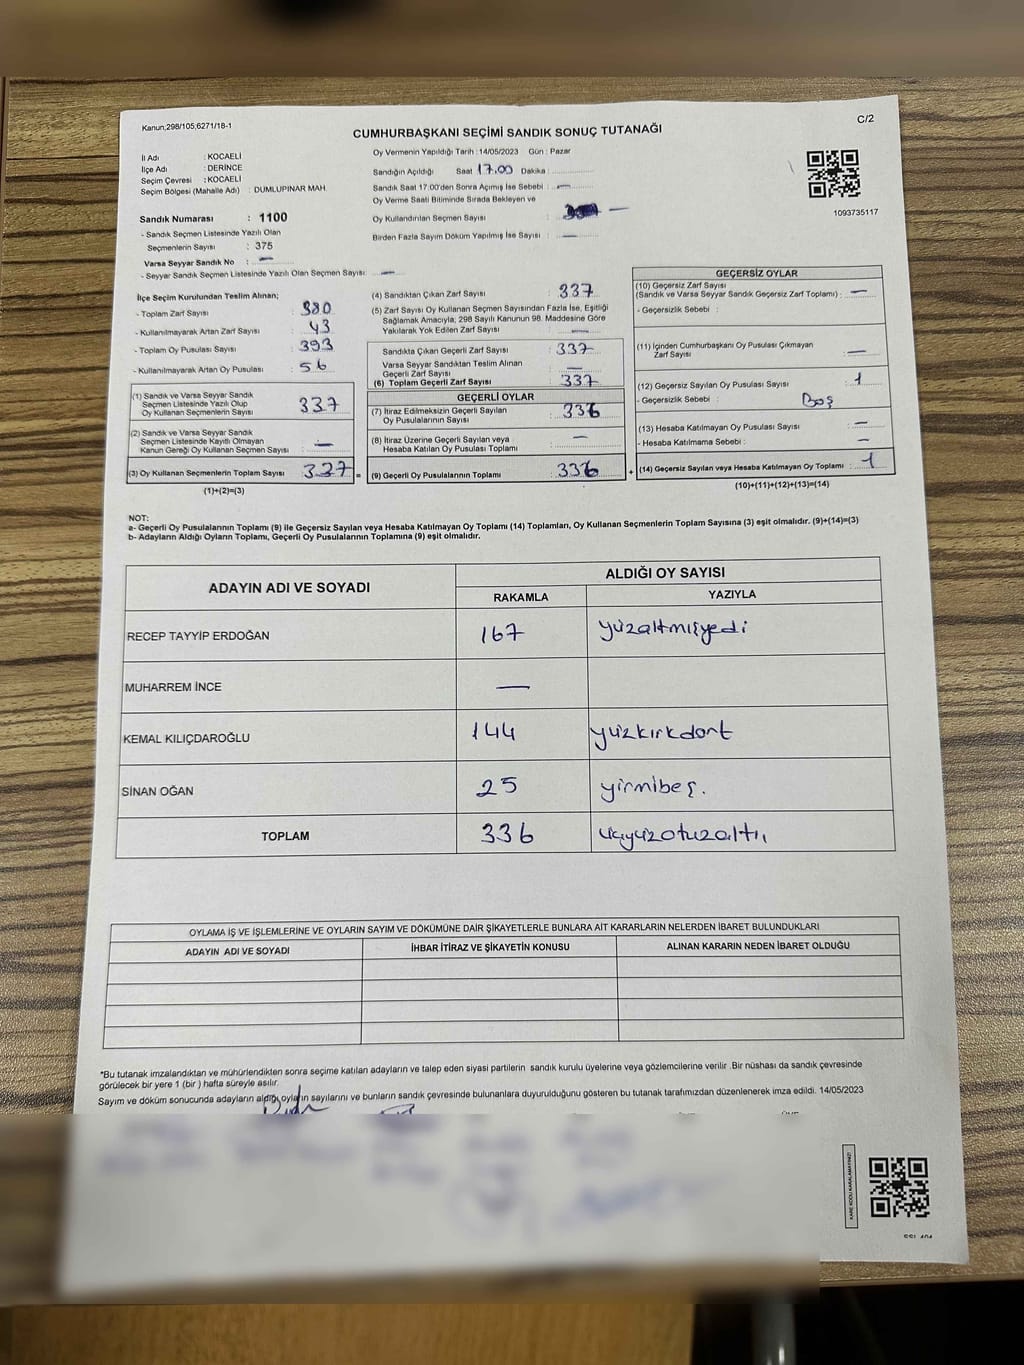 Kanun;298/105;6271/18-1
C/2
CUMHURBAŞKANI SEÇİMİ SANDIK SONUÇ TUTANAĞI
İl Adı : KOCAELİ
İlçe Adı : DERİNCE
Seçim Çevresi : KOCAELİ
Seçim Bölgesi (Mahalle Adı) : DUMLUPINAR MAH.
Sandık Numarası : 1100
- Sandık Seçmen Listesinde Yazılı Olan
Seçmenlerin Sayısı : 375
Varsa Seyyar Sandık No : —
- Seyyar Sandık Seçmen Listesinde Yazılı Olan Seçmen Sayısı: —
Oy Vermenin Yapıldığı Tarih : 14/05/2023 Gün : Pazar
Sandığın Açıldığı Saat 17.00 Dakika :
Sandık Saat 17.00'den Sonra Açımış İse Sebebi : —
Oy Verme Saati Bitiminde Sırada Bekleyen ve
Oy Kullandırılan Seçmen Sayısı : —
Birden Fazla Sayım Döküm Yapılmış İse Sayısı : —
1093735117
İlçe Seçim Kurulundan Teslim Alınan;
- Toplam Zarf Sayısı : 380
- Kullanılmayarak Artan Zarf Sayısı : 43
- Toplam Oy Pusulası Sayısı : 393
- Kullanılmayarak Artan Oy Pusulası : 56
(1) Sandık ve Varsa Seyyar Sandık
Seçmen Listesinde Yazılı Olup
Oy Kullanan Seçmenlerin Sayısı : 337
(2) Sandık ve Varsa Seyyar Sandık
Seçmen Listesinde Kayıtlı Olmayan
Kanun Gereği Oy Kullanan Seçmen Sayısı : —
(3) Oy Kullanan Seçmenlerin Toplam Sayısı : 337
(1)+(2)=(3)
(4) Sandıktan Çıkan Zarf Sayısı : 337
(5) Zarf Sayısı Oy Kullanan Seçmen Sayısından Fazla İse, Eşitliği
Sağlamak Amacıyla; 298 Sayılı Kanunun 98. Maddesine Göre
Yakılarak Yok Edilen Zarf Sayısı : —
Sandıkta Çıkan Geçerli Zarf Sayısı : 337
Varsa Seyyar Sandıktan Teslim Alınan
Geçerli Zarf Sayısı : —
(6) Toplam Geçerli Zarf Sayısı : 337
GEÇERLİ OYLAR
(7) İtiraz Edilmeksizin Geçerli Sayılan
Oy Pusulalarının Sayısı : 336
(8) İtiraz Üzerine Geçerli Sayılan veya
Hesaba Katılan Oy Pusulası Toplamı : —
= (9) Geçerli Oy Pusulalarının Toplamı : 336
GEÇERSİZ OYLAR
(10) Geçersiz Zarf Sayısı
(Sandık ve Varsa Seyyar Sandık Geçersiz Zarf Toplamı) : —
- Geçersizlik Sebebi :
(11) İçinden Cumhurbaşkanı Oy Pusulası Çıkmayan
Zarf Sayısı : —
(12) Geçersiz Sayılan Oy Pusulası Sayısı : 1
- Geçersizlik Sebebi : Boş
(13) Hesaba Katılmayan Oy Pusulası Sayısı : —
- Hesaba Katılmama Sebebi : —
+ (14) Geçersiz Sayılan veya Hesaba Katılmayan Oy Toplamı : 1
(10)+(11)+(12)+(13)=(14)
NOT:
a- Geçerli Oy Pusulalarının Toplamı (9) ile Geçersiz Sayılan veya Hesaba Katılmayan Oy Toplamı (14) Toplamları, Oy Kullanan Seçmenlerin Toplam Sayısına (3) eşit olmalıdır. (9)+(14)=(3)
b- Adayların Aldığı Oyların Toplamı, Geçerli Oy Pusulalarının Toplamına (9) eşit olmalıdır.
ADAYIN ADI VE SOYADI ALDIĞI OY SAYISI
RAKAMLA YAZIYLA
RECEP TAYYİP ERDOĞAN 167 yüzaltmışyedi
MUHARREM İNCE —
KEMAL KILIÇDAROĞLU 144 yüzkırkdört
SİNAN OĞAN 25 yirmibeş.
TOPLAM 336 üçyüzotuzaltı
OYLAMA İŞ VE İŞLEMLERİNE VE OYLARIN SAYIM VE DÖKÜMÜNE DAİR ŞİKAYETLERLE BUNLARA AİT KARARLARIN NELERDEN İBARET BULUNDUKLARI
ADAYIN ADI VE SOYADI İHBAR İTİRAZ VE ŞİKAYETİN KONUSU ALINAN KARARIN NEDEN İBARET OLDUĞU
*Bu tutanak imzalandıktan ve mühürlendikten sonra seçime katılan adayların ve talep eden siyasi partilerin sandık kurulu üyelerine veya gözlemcilerine verilir .Bir nüshası da sandık çevresinde
görülecek bir yere 1 (bir ) hafta süreyle asılır.
Sayım ve döküm sonucunda adayların aldığı oyların sayılarını ve bunların sandık çevresinde bulunanlara duyurulduğunu gösteren bu tutanak tarafımızdan düzenlenerek imza edildi. 14/05/2023
KARE KODU KARALAMAYINIZ!